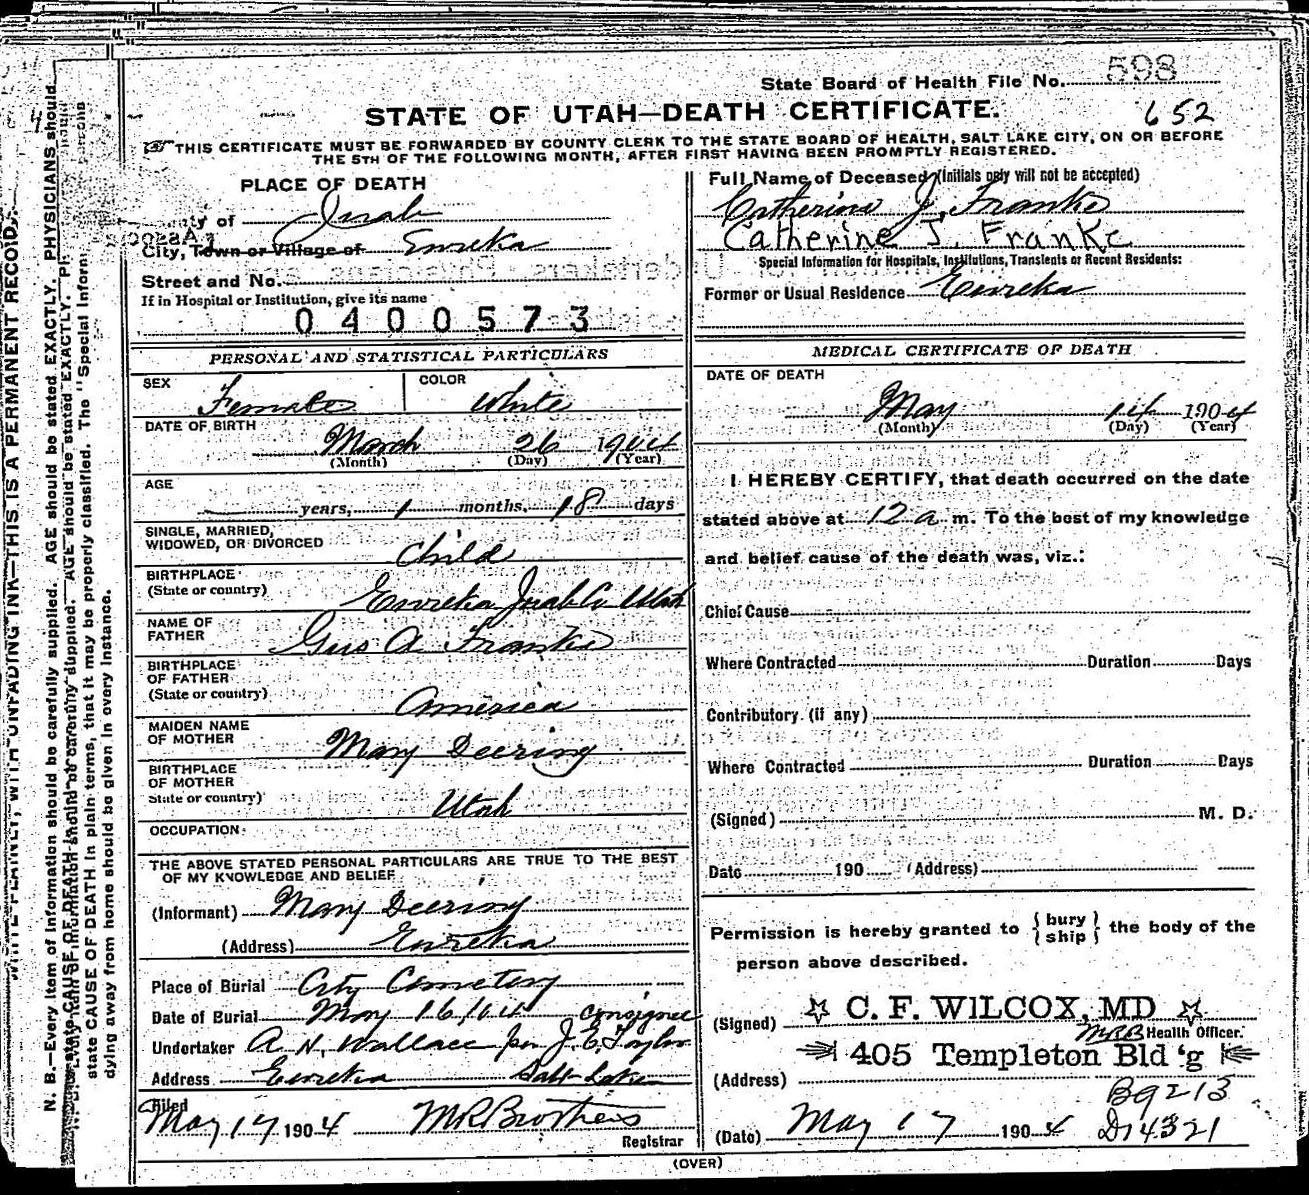 State Board of Health File No. 598
STATE OF UTAH—DEATH CERTIFICATE.
652
THIS CERTIFICATE MUST BE FORWARDED BY COUNTY CLERK TO THE STATE BOARD OF HEALTH, SALT LAKE CITY, ON OR BEFORE
THE 5TH OF THE FOLLOWING MONTH, AFTER FIRST HAVING BEEN PROMPTLY REGISTERED.
PLACE OF DEATH
ty of Juab
City, Town or Village of Eureka
Street and No.
If in Hospital or Institution, give its name
0400573
Full Name of Deceased (Initials only will not be accepted)
Catherine J. Franke
Catherine J. Franke
Special Information for Hospitals, Institutions, Transients or Recent Residents:
Former or Usual Residence Eureka
PERSONAL AND STATISTICAL PARTICULARS
SEX Female COLOR White
DATE OF BIRTH
March 26 1904
(Month) (Day) (Year)
AGE
years, 1 months, 18 days
SINGLE, MARRIED,
WIDOWED, OR DIVORCED Child
BIRTHPLACE
(State or country) Eureka Juab Co Utah
NAME OF
FATHER Gus A Franke
BIRTHPLACE
OF FATHER
(State or country) America
MAIDEN NAME
OF MOTHER Mary Deering
BIRTHPLACE
OF MOTHER
State or country) Utah
OCCUPATION
THE ABOVE STATED PERSONAL PARTICULARS ARE TRUE TO THE BEST
OF MY KNOWLEDGE AND BELIEF
(Informant) Mary Deering
(Address) Eureka
Place of Burial City Cemetery
Date of Burial May 16, 04 consignee
Undertaker A. N. Wallace per J. E. Taylor
Address Eureka Salt Lake
Filed
May 17 1904 M R Brothers
Registrar
MEDICAL CERTIFICATE OF DEATH
DATE OF DEATH
May 14 1904
(Month) (Day) (Year)
I HEREBY CERTIFY, that death occurred on the date
stated above at 12 a m. To the best of my knowledge
and belief cause of the death was, viz.:
Chief Cause
Where Contracted Duration Days
Contributory (if any)
Where Contracted Duration Days
(Signed) M. D.
Date 190 (Address)
Permission is hereby granted to { bury ship } the body of the
person above described.
(Signed) C. F. WILCOX, MD
MRB Health Officer.
405 Templeton Bld'g
(Address)
B9213
(Date) May 17 1904 D14321
(OVER)
N. B.—Every item of information should be carefully supplied. AGE should be stated EXACTLY. PHYSICIANS should
state CAUSE OF DEATH in plain terms, that it may be properly classified. The "Special Inform
dying away from home should be given in every instance.